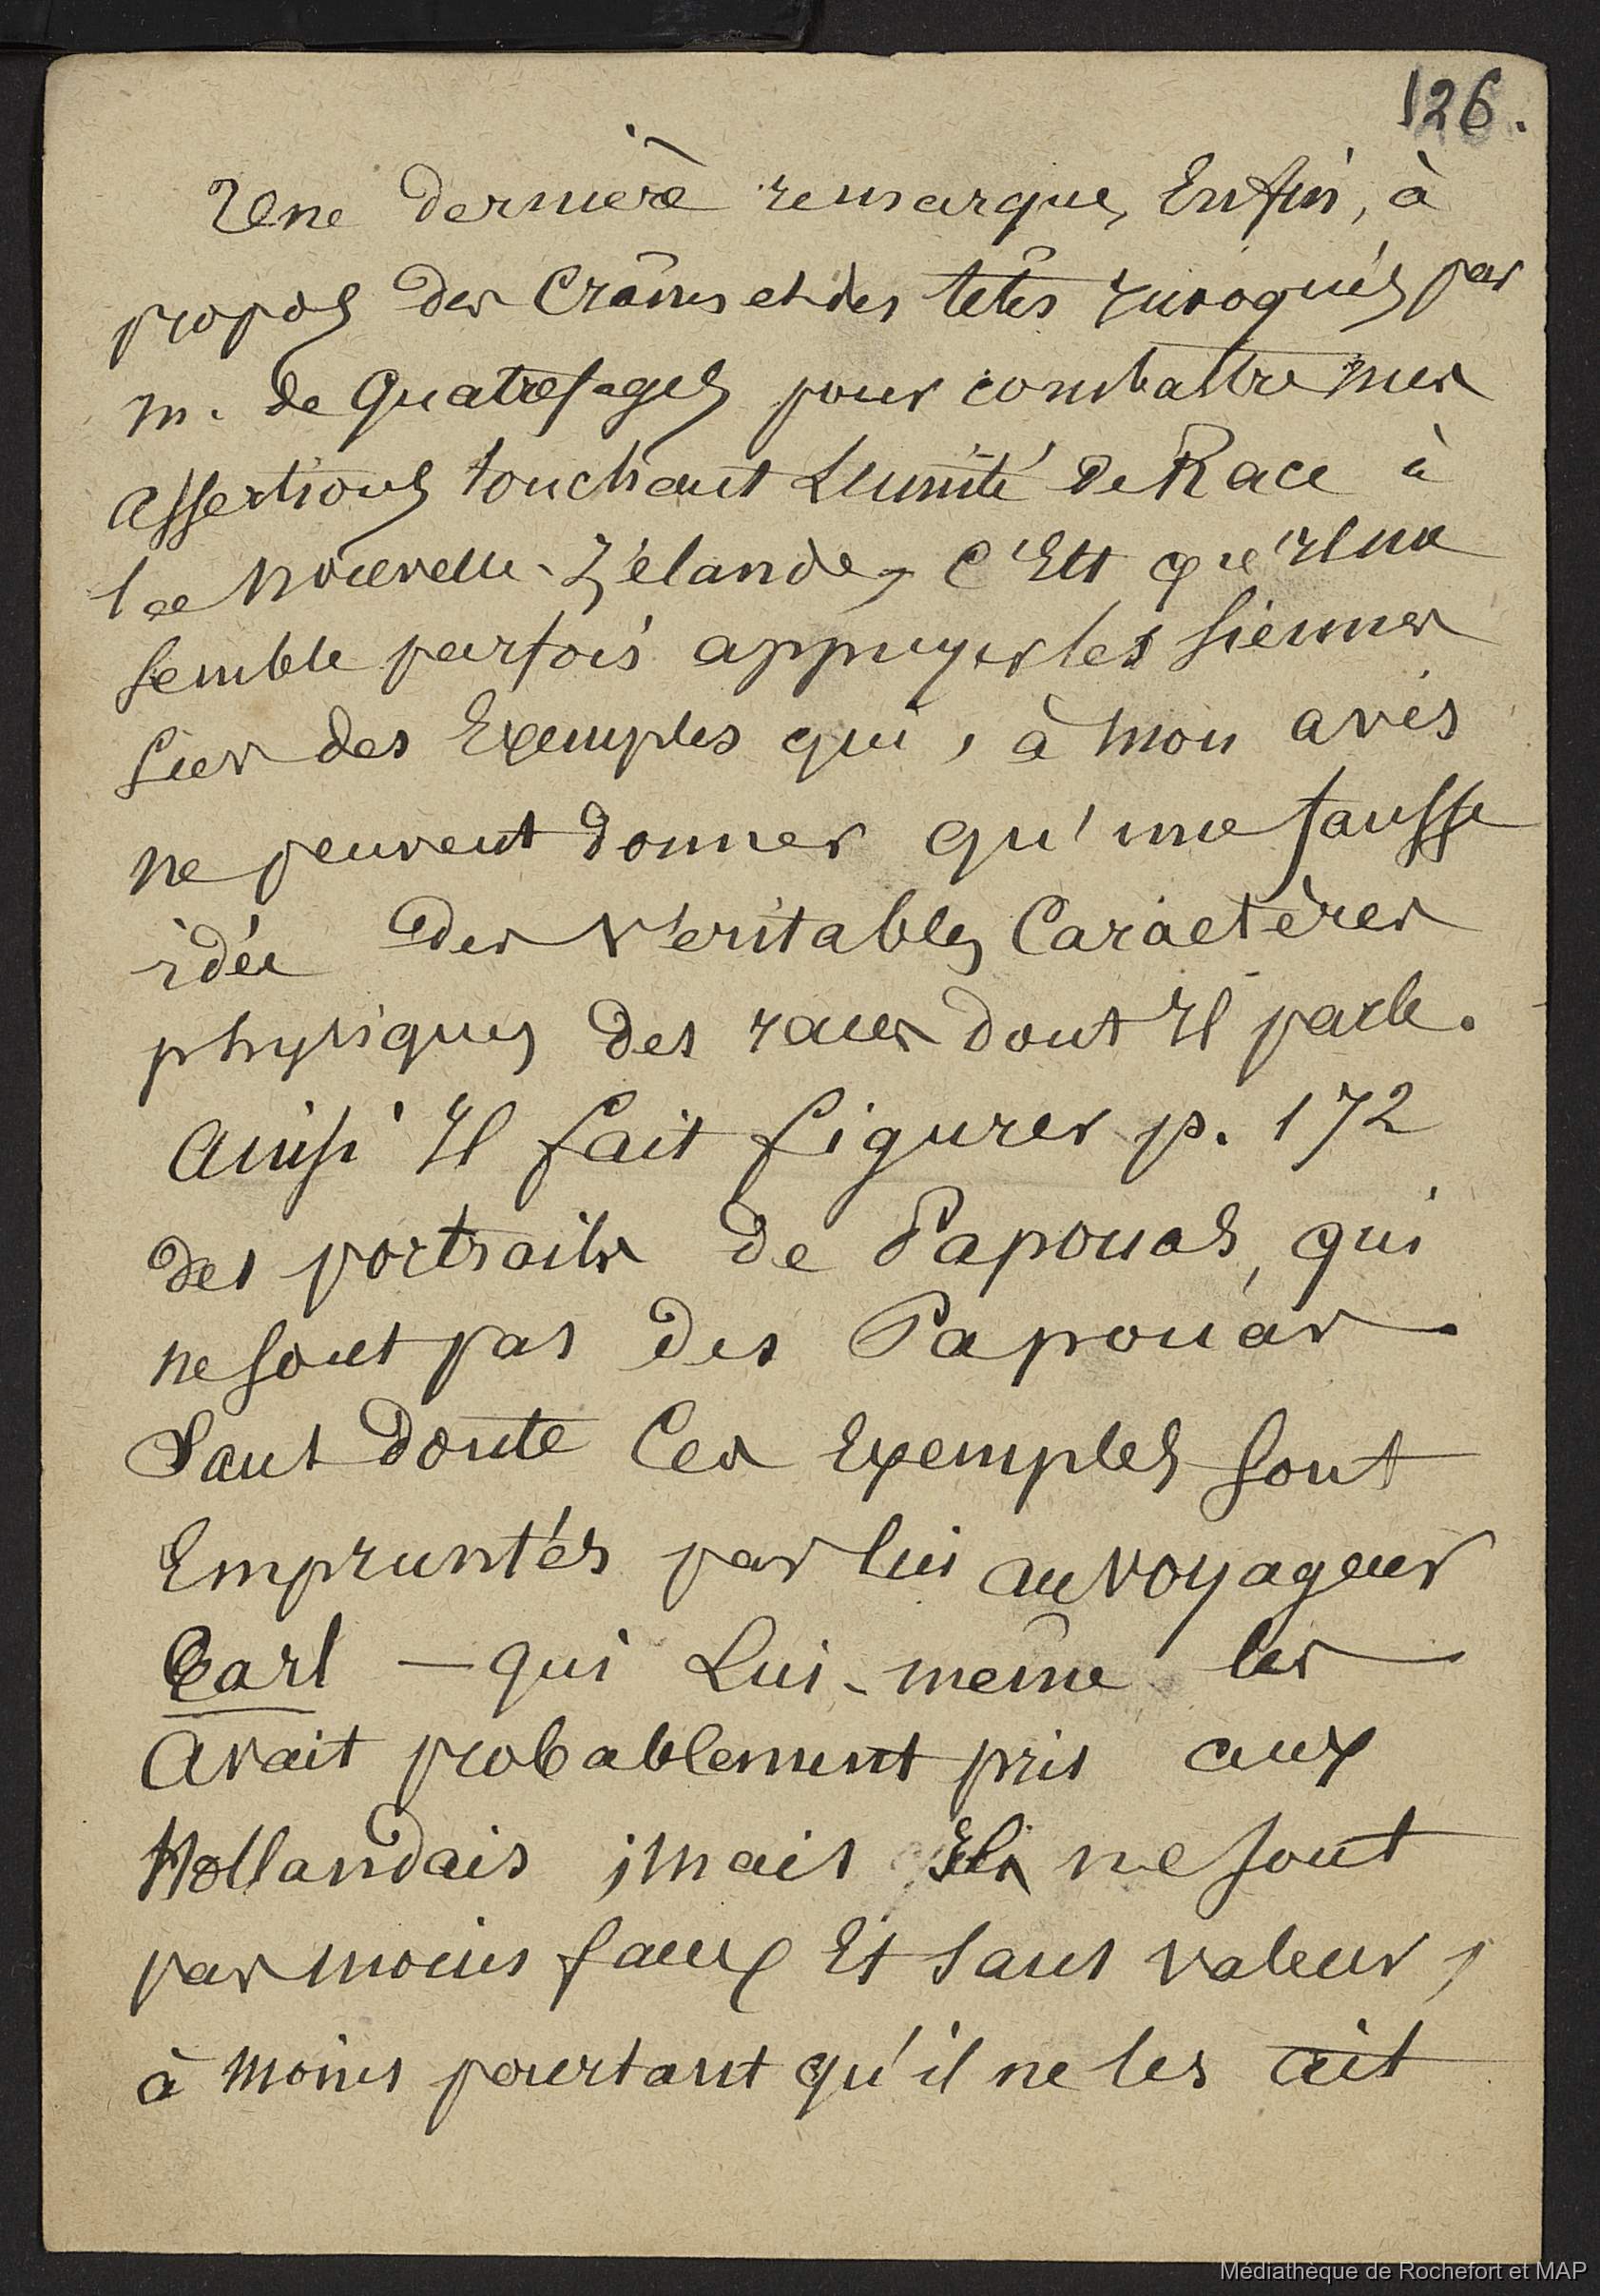 126.
Une dernière remarque, Enfin, à
propos des Crânes et des têtes invoqués par
M. de Quatrefages pour combattre mes
assertions touchant L'unité de Race à
la Nouvelle-Zélande, C'Est qu'Il me
semble parfois appuyer les siennes
sur des Exemples qui, à mon avis
ne peuvent donner qu'une fausse
idée des véritables Caractères
physiques des races dont Il parle.
Ainsi Il fait figurer p. 172
des portraits de Papouas, qui
ne sont pas des Papouas.
Sans doute Ces Exemples sont
Empruntés par lui au voyageur
Earl — qui Lui-même les
avait probablement pris aux
Hollandais ; mais Ils ne sont
pas moins faux Et sans valeur,
à moins pourtant qu'il ne les ait
Médiathèque de Rochefort et MAP